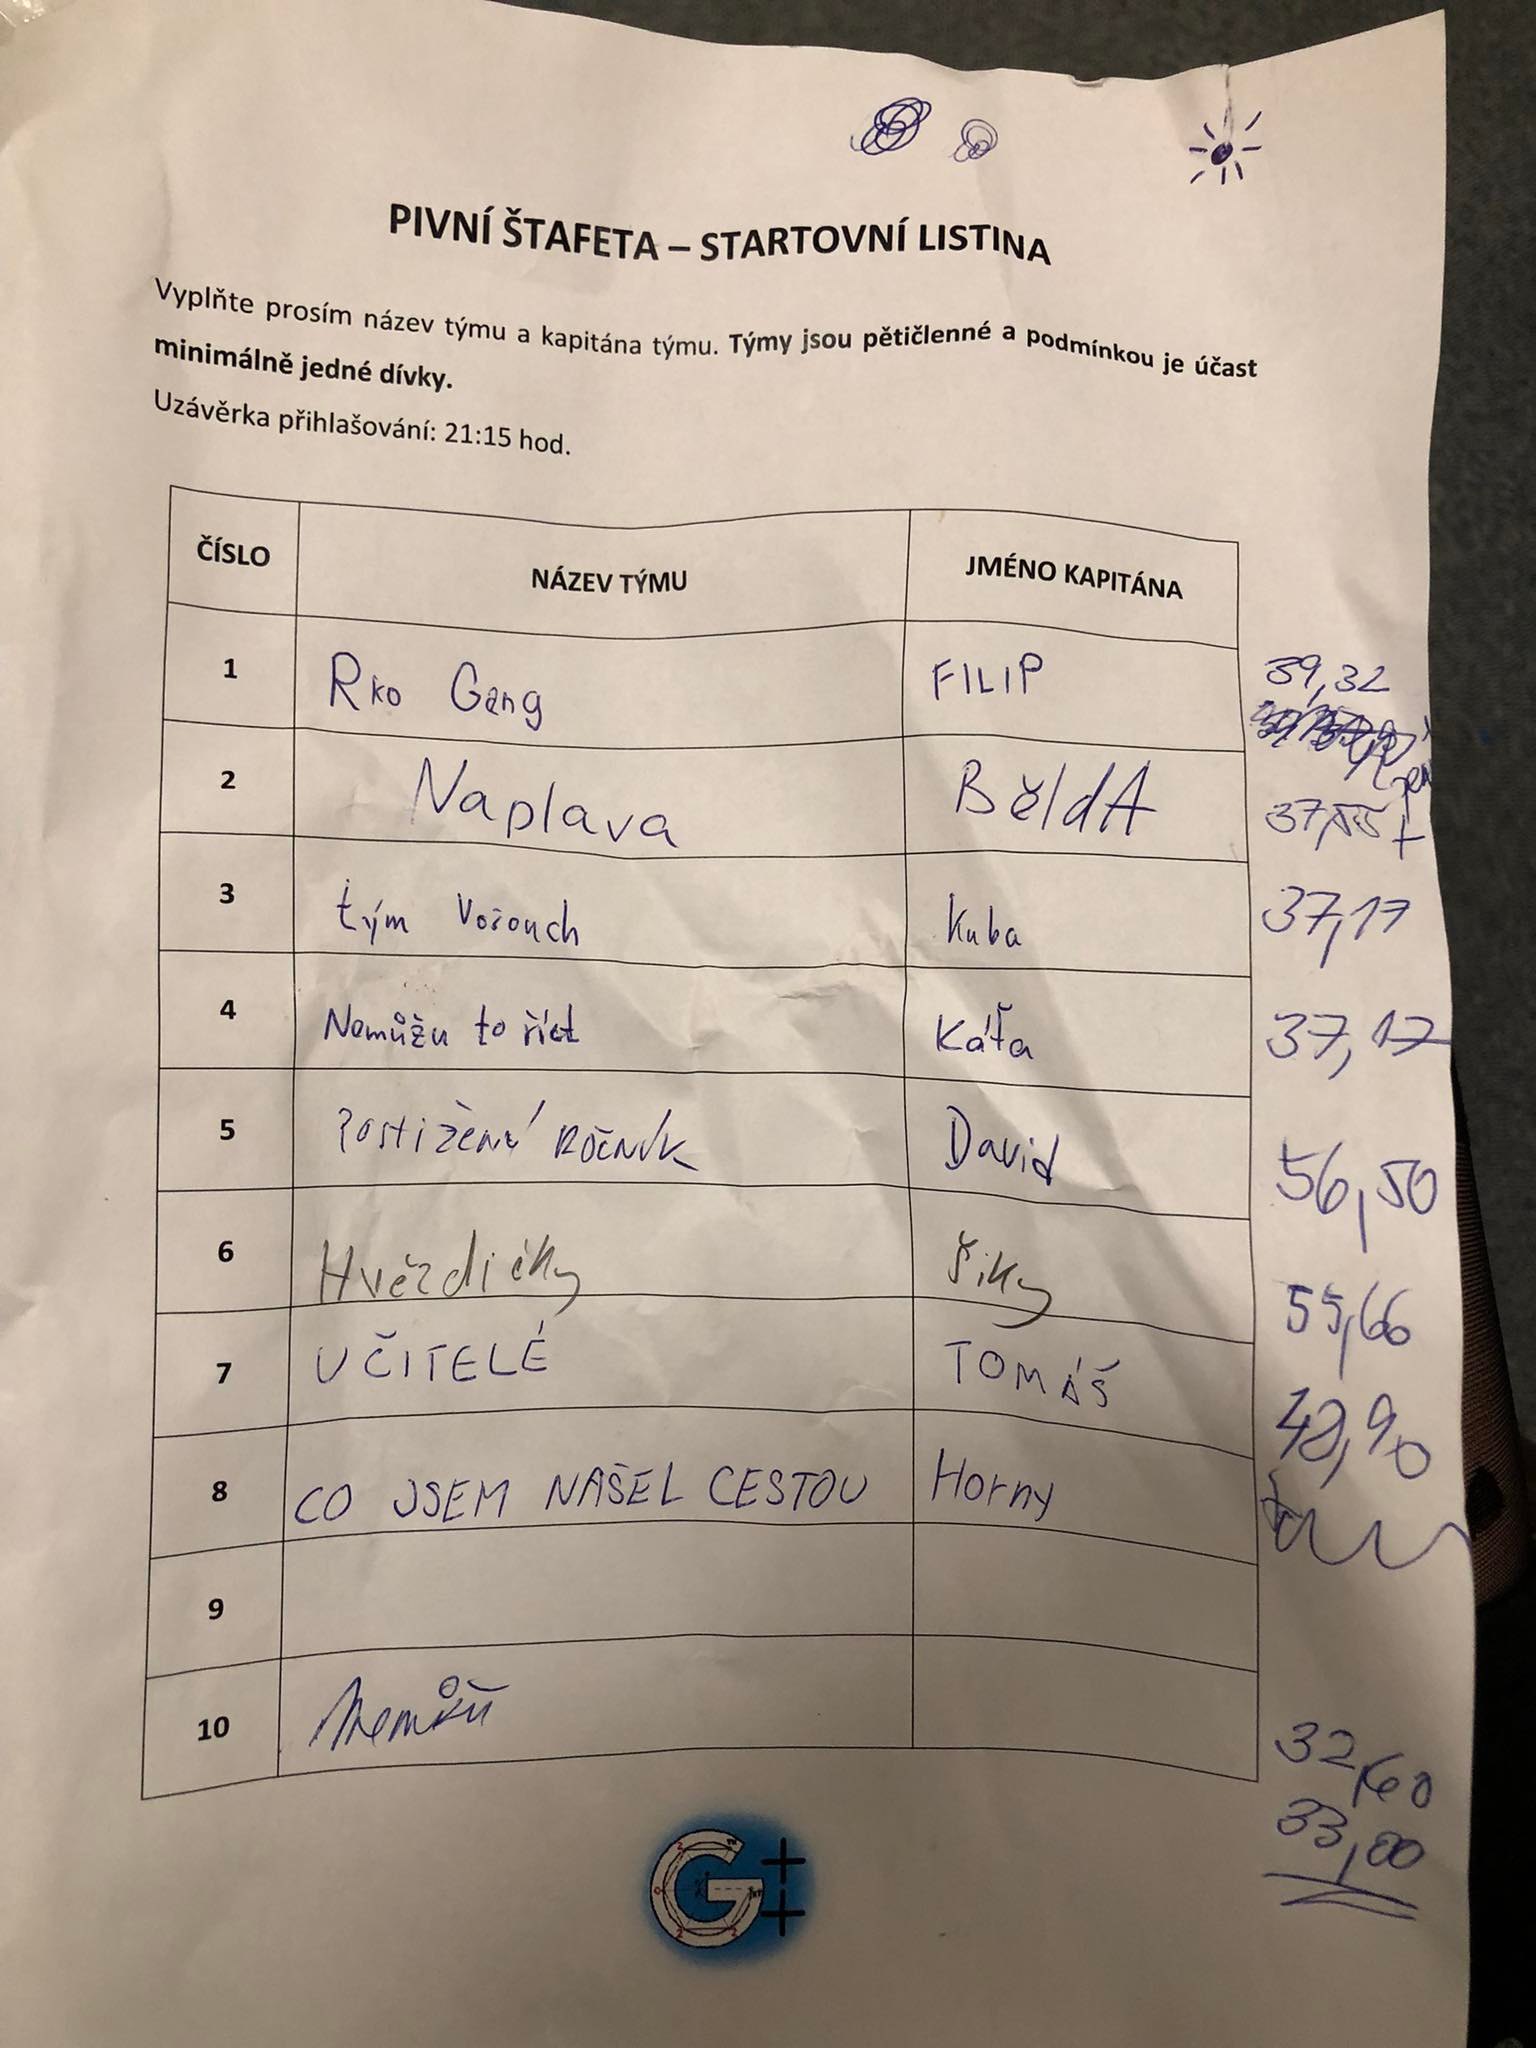 PIVNÍ ŠTAFETA – STARTOVNÍ LISTINA
Vyplňte prosím název týmu a kapitána týmu. Týmy jsou pětičlenné a podmínkou je účast
minimálně jedné dívky.
Uzávěrka přihlašování: 21:15 hod.
ČÍSLO NÁZEV TÝMU JMÉNO KAPITÁNA
1 Rko Gang FILIP 39,32
2 Naplava BěldA 37,55
3 tým Vošouch Kuba 37,17
4 Nemůžu to říct Káťa 37,17
5 Postižený ROČNÍK David 56,50
6 Hvězdičky Řiky 55,66
7 UČITELÉ TOMÁŠ 48,90
8 CO JSEM NAŠEL CESTOU Horny
9
10 Nemůžu 32,60
33,00
G++